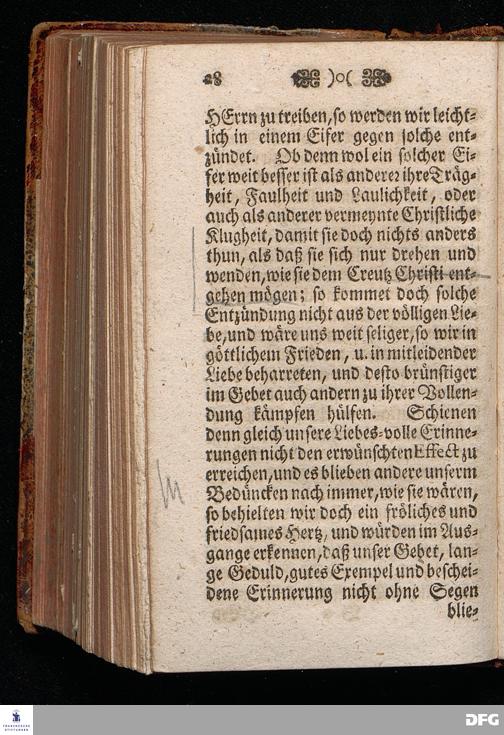 28 )o(
HErrn zu treiben, so werden wir leicht-
lich in einem Eifer gegen solche ent-
zündet. Ob denn wol ein solcher Ei-
fer weit besser ist als anderer ihre Träg-
heit, Faulheit und Laulichkeit, oder
auch als anderer vermeynte Christliche
Klugheit, damit sie doch nichts anders
thun, als daß sie sich nur drehen und
wenden, wie sie dem Creutz Christi ent-
gehen mögen; so kommet doch solche
Entzündung nicht aus der völligen Lie-
be, und wäre uns weit seliger, so wir in
göttlichem Frieden, u. in mitleidender
Liebe beharreten, und desto brünstiger
im Gebet auch andern zu ihrer Vollen-
dung kämpfen hülfen. Schienen
denn gleich unsere Liebes-volle Erinne-
rungen nicht den erwünschten Effect zu
erreichen, und es blieben andere unserm
Bedüncken nach immer, wie sie wären,
so behielten wir doch ein fröliches und
friedsames Hertz, und würden im Aus-
gange erkennen, daß unser Gebet, lan-
ge Geduld, gutes Exempel und beschei-
dene Erinnerung nicht ohne Segen
blie-
FRANCKESCHE
STIFTUNGEN
DFG